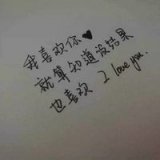 我喜欢你♥
就算知道没结果
也喜欢 I love you.